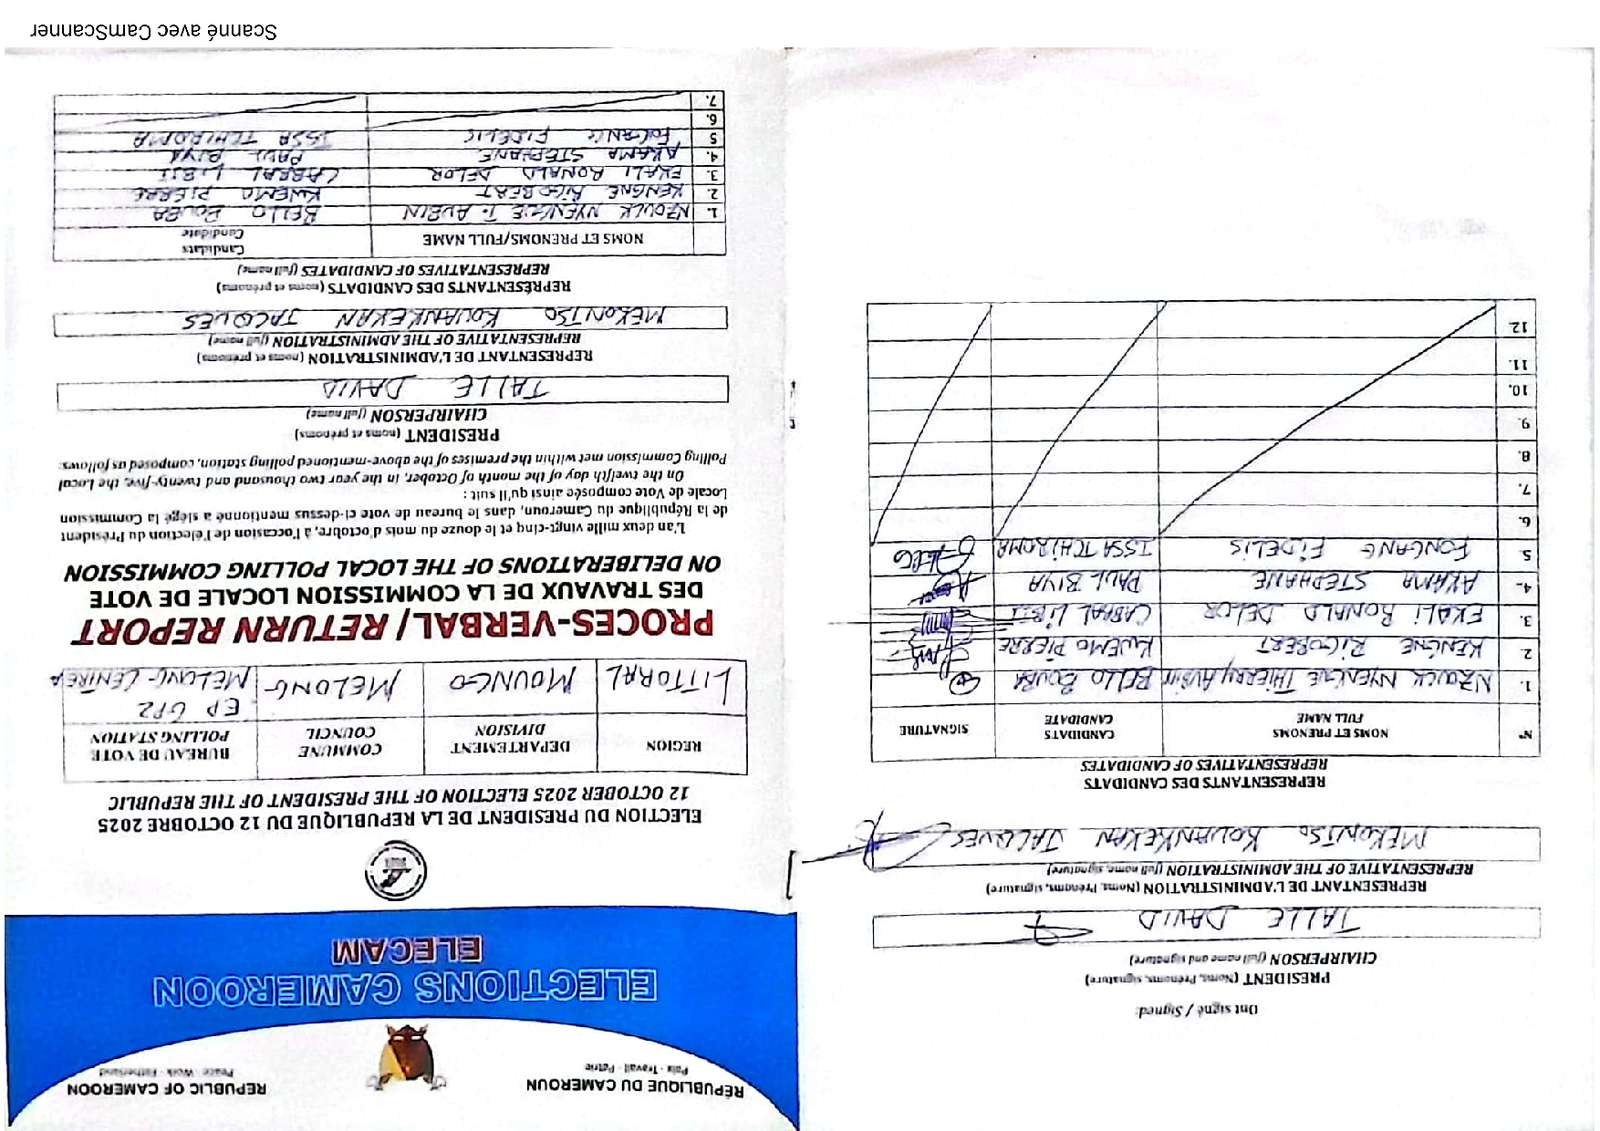 Scanné avec CamScanner
RÉPUBLIQUE DU CAMEROUN
Paix - Travail - Patrie
REPUBLIC OF CAMEROON
Peace - Work - Fatherland
ELECTIONS CAMEROON
ELECAM
ELECTION DU PRESIDENT DE LA REPUBLIQUE DU 12 OCTOBRE 2025
12 OCTOBER 2025 ELECTION OF THE PRESIDENT OF THE REPUBLIC
REGION
DEPARTEMENT
DIVISION
COMMUNE
COUNCIL
BUREAU DE VOTE
POLLING STATION
LITTORAL
MOUNGO
MELONG
EP GP2
MELONG-CENTRE A
PROCES-VERBAL/ RETURN REPORT
DES TRAVAUX DE LA COMMISSION LOCALE DE VOTE
ON DELIBERATIONS OF THE LOCAL POLLING COMMISSION
L'an deux mille vingt-cinq et le douze du mois d'octobre, à l'occasion de l'élection du Président
de la République du Cameroun, dans le bureau de vote ci-dessus mentionné a siégé la Commission
Locale de Vote composée ainsi qu'il suit :
On the twelfth day of the month of October, in the year two thousand and twenty-five, the Local
Polling Commission met within the premises of the above-mentioned polling station, composed as follows:
PRESIDENT (noms et prénoms)
CHAIRPERSON (full name)
TALLE DAVID
REPRESENTANT DE L'ADMINISTRATION (noms et prénoms)
REPRESENTATIVE OF THE ADMINISTRATION (full name)
MEKONTSO KOUANKEKAN JACQUES
REPRÉSENTANTS DES CANDIDATS (noms et prénoms)
REPRESENTATIVES OF CANDIDATES (full name)
NOMS ET PRENOMS/FULL NAME
Candidats
Candidate
1. NZOUCK NYENGUE T. AUBIN BELLO BOUBA
2. KENGNE RIGOBERT KWEMO PIERRE
3. EKALI RONALD DELOR CABRAL LIBII
4. AKAMA STEPHANE PAUL BIYA
5 FONGANG FIDELIS ISSA TCHIROMA
6.
7.
Ont signé / Signed:
PRESIDENT (Noms, Prénoms, signature)
CHAIRPERSON (full name and signature)
TALLE DAVID
REPRESENTANT DE L'ADMINISTRATION (Noms, Prénoms, signature)
REPRESENTATIVE OF THE ADMINISTRATION (full name, signature)
MEKONTSO KOUANKEKAN JACQUES
REPRESENTANTS DES CANDIDATS
REPRESENTATIVES OF CANDIDATES
N°
NOMS ET PRENOMS
FULL NAME
CANDIDATS
CANDIDATE
SIGNATURE
1. NZOUCK NYENGUE THIERRY AUBIN BELLO BOUBA
2 KENGNE RIGOBERT KWEMO PIERRE
3. EKALI RONALD DELOR CABRAL LIBII
4. AKAMA STEPHANE PAUL BIYA
5. FONGANG FIDELIS ISSA TCHIROMA
6.
7.
8.
9.
10.
11.
12